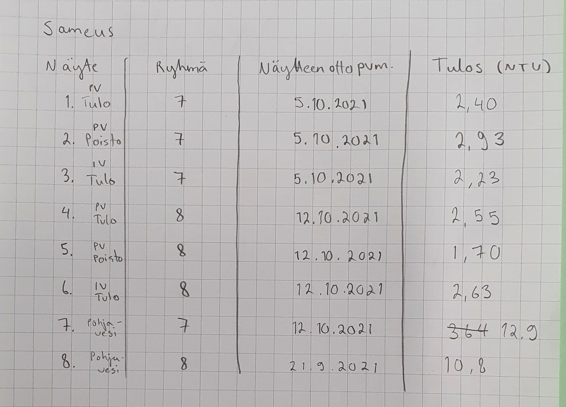 Sameus
Näyte Ryhmä Näytteenottopvm. Tulos (NTU)
1. PV Tulo 7 5.10.2021 2,40
2. PV Poisto 7 5.10.2021 2,93
3. IV Tulo 7 5.10.2021 2,23
4. PV Tulo 8 12.10.2021 2,55
5. PV Poisto 8 12.10.2021 1,70
6. IV Tulo 8 12.10.2021 2,63
7. Pohja-vesi 7 12.10.2021 364 12.9
8. Pohja-vesi 8 21.9.2021 10,8